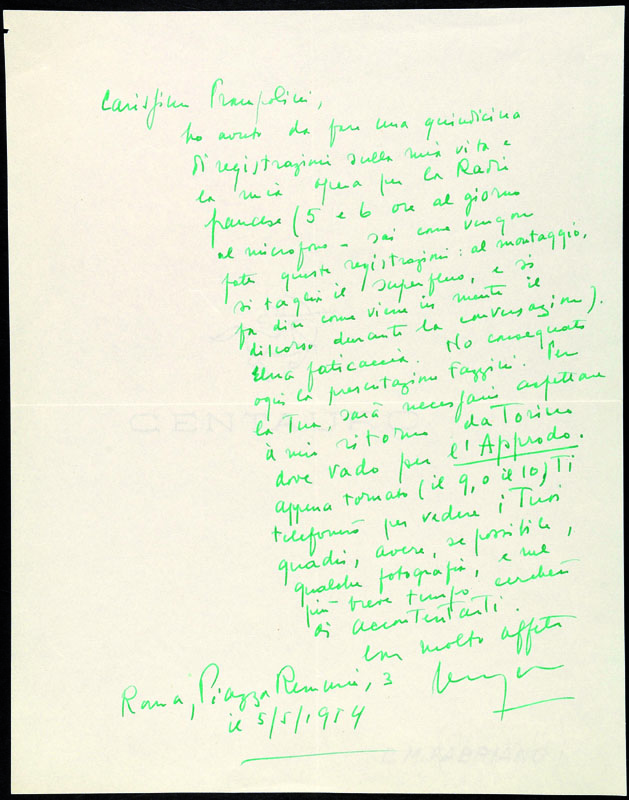 Carissimo Prampolini,
ho avuto da fare una quindicina
di registrazioni sulla mia vita e
la mia opera per la Radio
francese (5 e 6 ore al giorno
al microfono - sai come vengon
fatte queste registrazioni: al montaggio,
si taglia il superfluo, e si
fa dire come viene in mente il
discorso durante la conversazione).
Una faticaccia. Ho consegnato
oggi la presentazione Fazzini. Per
la Tua, sarà necessario aspettare
il mio ritorno da Torino
dove vado per l'Approdo.
appena tornato (il 9, o il 10) Ti
telefonerò per vedere i Tuoi
quadri, avere, se possibile,
qualche fotografia, e nel
più breve tempo cercherò
di accontentarti.
Con molto affetto
Roma, Piazza Remuria, 3
il 5/5/1954
C. M. FABRIANO